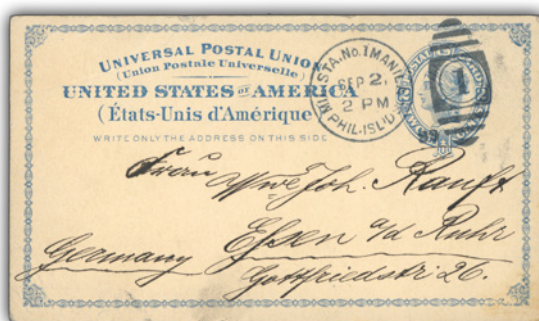 UNIVERSAL POSTAL UNION
(Union Postale Universelle)
UNITED STATES OF AMERICA
(États-Unis d'Amérique)
WRITE ONLY THE ADDRESS ON THIS SIDE
MIL. STA. No. 1 MANILA
SEP 2,
2 PM
PHIL. ISL'DS
1
Frau Wwe Joh. Rauft
Essen a/d Ruhr
Germany
Gottfriedstr. 26.